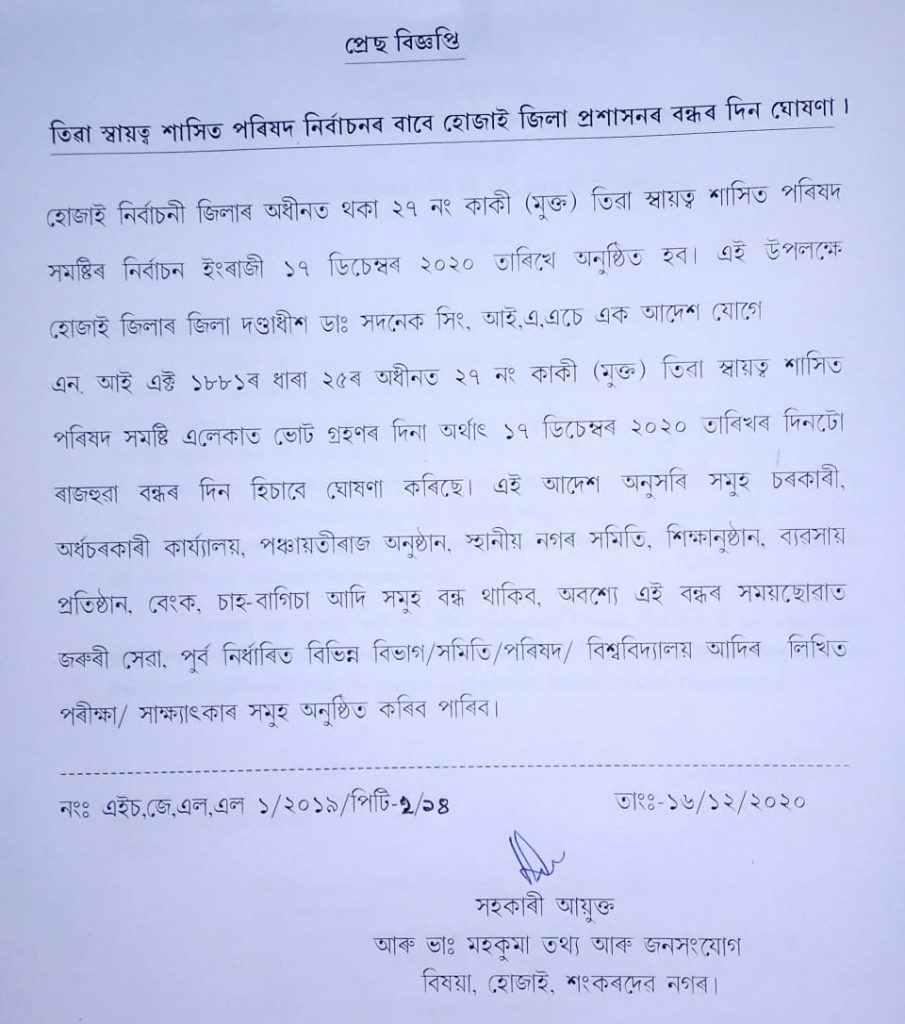 প্ৰেছ বিজ্ঞপ্তি
তিৱা স্বায়ত্ব শাসিত পৰিষদ নিৰ্বাচনৰ বাবে হোজাই জিলা প্ৰশাসনৰ বন্ধৰ দিন ঘোষণা ।
হোজাই নিৰ্বাচনী জিলাৰ অধীনত থকা ২৭ নং কাকী (মুক্ত) তিৱা স্বায়ত্ব শাসিত পৰিষদ
সমষ্টিৰ নিৰ্বাচন ইংৰাজী ১৭ ডিচেম্বৰ ২০২০ তাৰিখে অনুষ্ঠিত হব। এই উপলক্ষে
হোজাই জিলাৰ জিলা দণ্ডাধীশ ডাঃ সদনেক সিং, আই,এ,এচে এক আদেশ যোগে
এন. আই এক্ট ১৮৮১ৰ ধাৰা ২৫ৰ অধীনত ২৭ নং কাকী (মুক্ত) তিৱা স্বায়ত্ব শাসিত
পৰিষদ সমষ্টি এলেকাত ভোট গ্ৰহণৰ দিনা অৰ্থাৎ ১৭ ডিচেম্বৰ ২০২০ তাৰিখৰ দিনটো
ৰাজহুৱা বন্ধৰ দিন হিচাবে ঘোষণা কৰিছে। এই আদেশ অনুসৰি সমূহ চৰকাৰী,
অৰ্ধচৰকাৰী কাৰ্য্যালয়, পঞ্চায়তীৰাজ অনুষ্ঠান, স্থানীয় নগৰ সমিতি, শিক্ষানুষ্ঠান, ব্যৱসায়
প্ৰতিষ্ঠান, বেংক, চাহ-বাগিচা আদি সমূহ বন্ধ থাকিব, অৱশ্যে এই বন্ধৰ সময়ছোৱাত
জৰুৰী সেৱা, পূৰ্ব নিৰ্ধাৰিত বিভিন্ন বিভাগ/সমিতি/পৰিষদ/ বিশ্ববিদ্যালয় আদিৰ লিখিত
পৰীক্ষা/ সাক্ষ্যাৎকাৰ সমূহ অনুষ্ঠিত কৰিব পাৰিব।
নংঃ এইচ,জে,এল,এল ১/২০১৯/পিটি-2/১৪ তাংঃ-১৬/১২/২০২০
সহকাৰী আয়ুক্ত
আৰু ভাঃ মহকুমা তথ্য আৰু জনসংযোগ
বিষয়া, হোজাই, শংকৰদেৱ নগৰ।